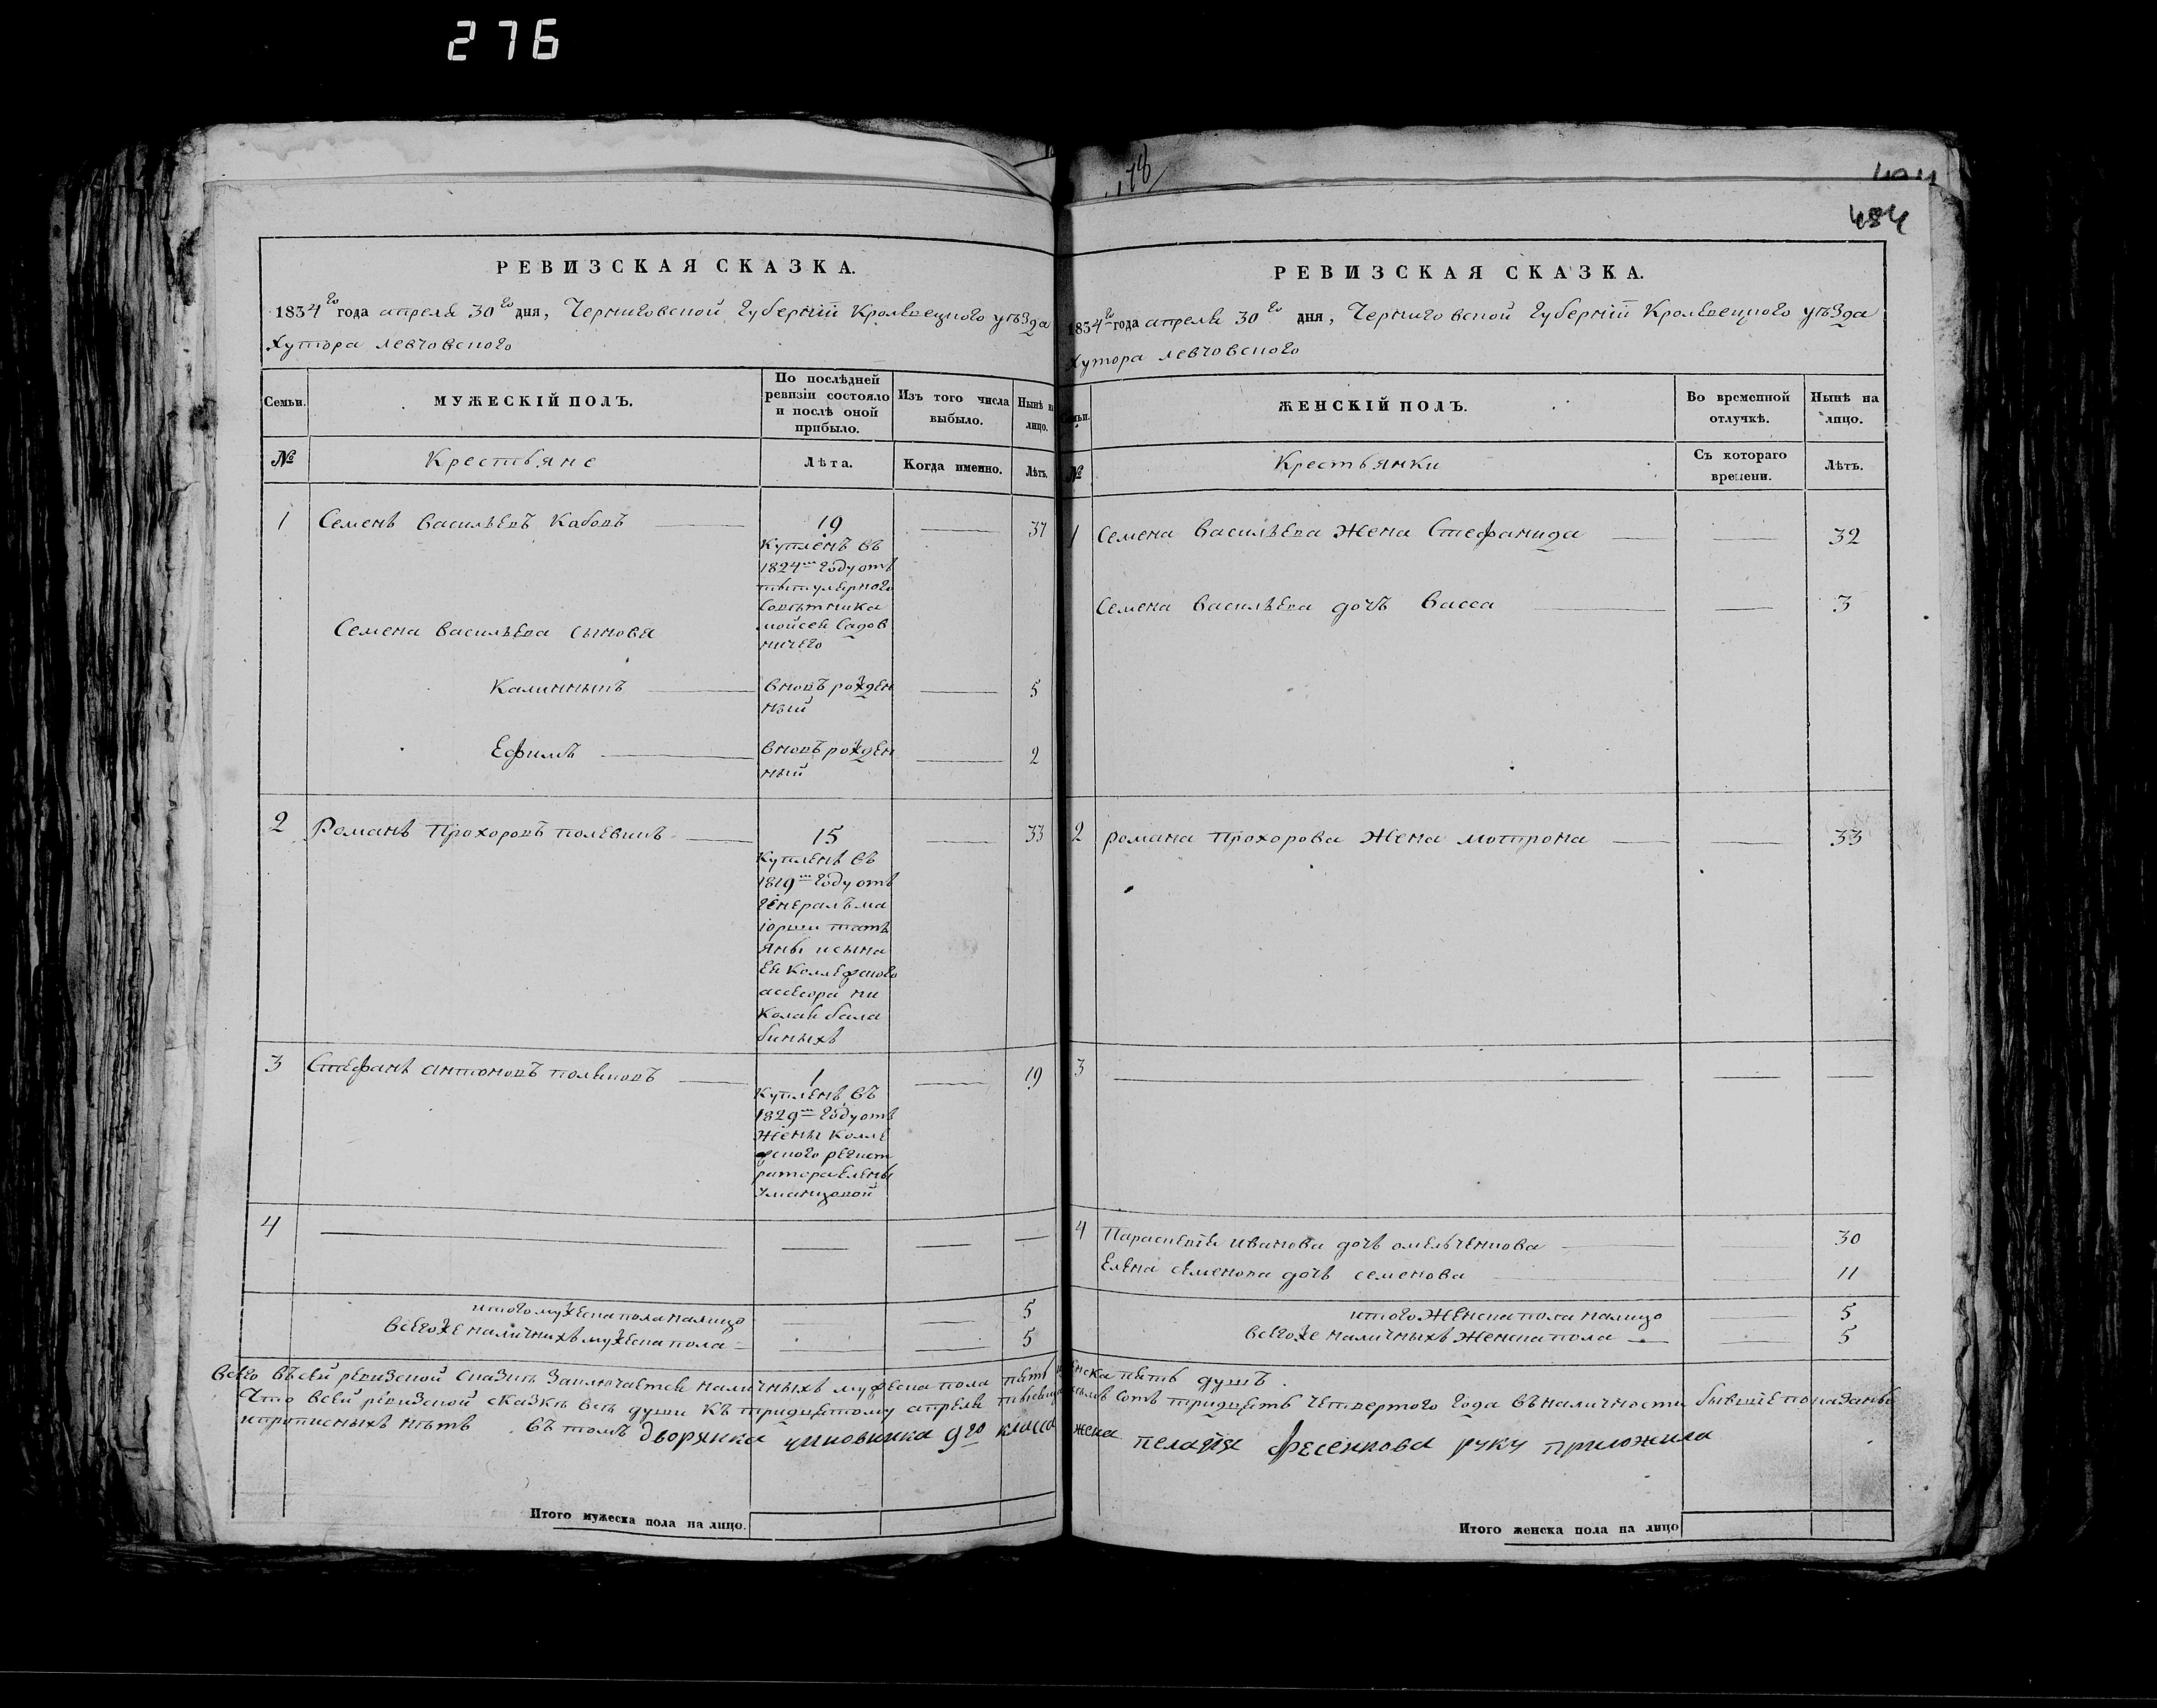 276
178
484
РЕВИЗСКАЯ СКАЗКА.
1834го года апреля 30го дня, Черниговской Губернїи Кролевецкого уезда
Хутора Левчовского
Семьи.
МУЖЕСКІЙ ПОЛЪ.
По послѣдней ревизіи состояло и послѣ оной прибыло.
Изъ того числа выбыло.
Нынѣ на лицо.
№
Крестьяне
Лѣта.
Когда именно.
Лѣтъ.
1 Семенъ Васильевъ Кабовъ 19 37
Купленъ въ
1824м году отъ
титулярного
Советника
мойсея Садов
ничего
Семена Васильева сыновя
Калинныкъ вновъ рожден 5
ный
Ефимъ вновъ рожден 2
ный
2 Романъ Прохоровъ 15 33
Купленъ въ
1819м году отъ
генералъ ма
іорши тать
яны и сына
ея Коллежского
асесора ни
колая бала
биныхъ
3 Стефанъ антоновъ 1 19
Купленъ въ
1829м году отъ
жены колле
жского регист
ратора Елены
Уманцовой
4
итого мужеска пола налицо 5
всего же наличныхъ мужеска пола 5
РЕВИЗСКАЯ СКАЗКА.
1834го года апреля 30го дня, Черниговской Губернїи Кролевецкого уезда
Хутора Левчовского
Семьи.
ЖЕНСКІЙ ПОЛЪ.
Во временной отлучкѣ.
Нынѣ на лицо.
№
Крестьянки
Съ котораго времени.
Лѣтъ.
1 Семена Васильева Жена Стефанида 32
Семена Васильева дочъ Васса 3
2 романа Прохорова Жена мотрона 33
3
4 Параскевїя иванова дочъ омельченкова 30
Елена семенова дочъ семенова 11
итого Женска пола налицо 5
всего же наличныхъ Женска пола 5
всего въ сей ревизской сказкѣ заключается наличныхъ мужеска пола пять женска пять душъ.
Что в сей ревизской сказкѣ все души къ тридцятому апреля тисяща сотъ тридцять четвертого года въ наличности бывшїе показаны
и прописныхъ нѣтъ. въ томъ дворянка чиновника 9го класса жена пелагія фесенкова руку приложила
Итого мужеска пола на лицо.
Итого женска пола на лицо